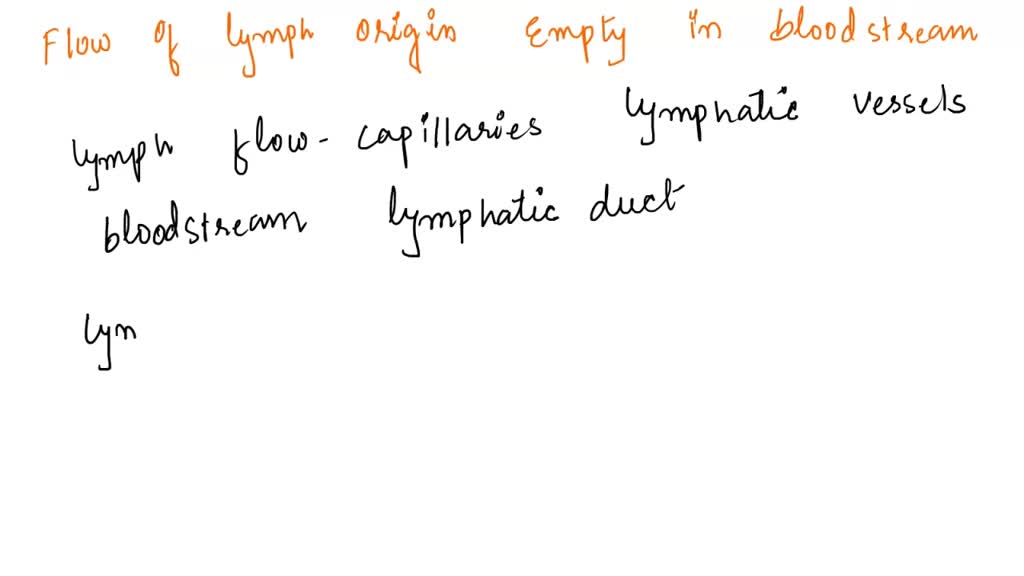 Flow of lymph origin Empty in bloodstream
lymph flow - capillaries lymphatic vessels
bloodstream lymphatic duct
lym